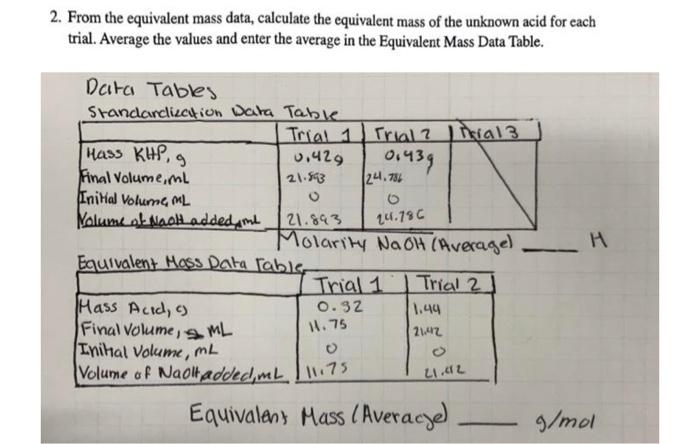 2. From the equivalent mass data, calculate the equivalent mass of the unknown acid for each
trial. Average the values and enter the average in the Equivalent Mass Data Table.
Data Tables
Standardization Data Table
Trial 1 Trial 2 Trial 3
Mass KHP, g 0.42g 0.43g
Final Volume, mL 21.893 24.786
Initial Volume, mL 0 0
Volume of NaOH added, mL 21.893 24.786
Molarity NaOH (Average) ____ M
Equivalent Mass Data Table
Trial 1 Trial 2
Mass Acid, g 0.32 1.44
Final Volume, mL 11.75 21.42
Initial Volume, mL 0 0
Volume of NaOH added, mL 11.75 21.42
Equivalent Mass (Average) ____ g/mol